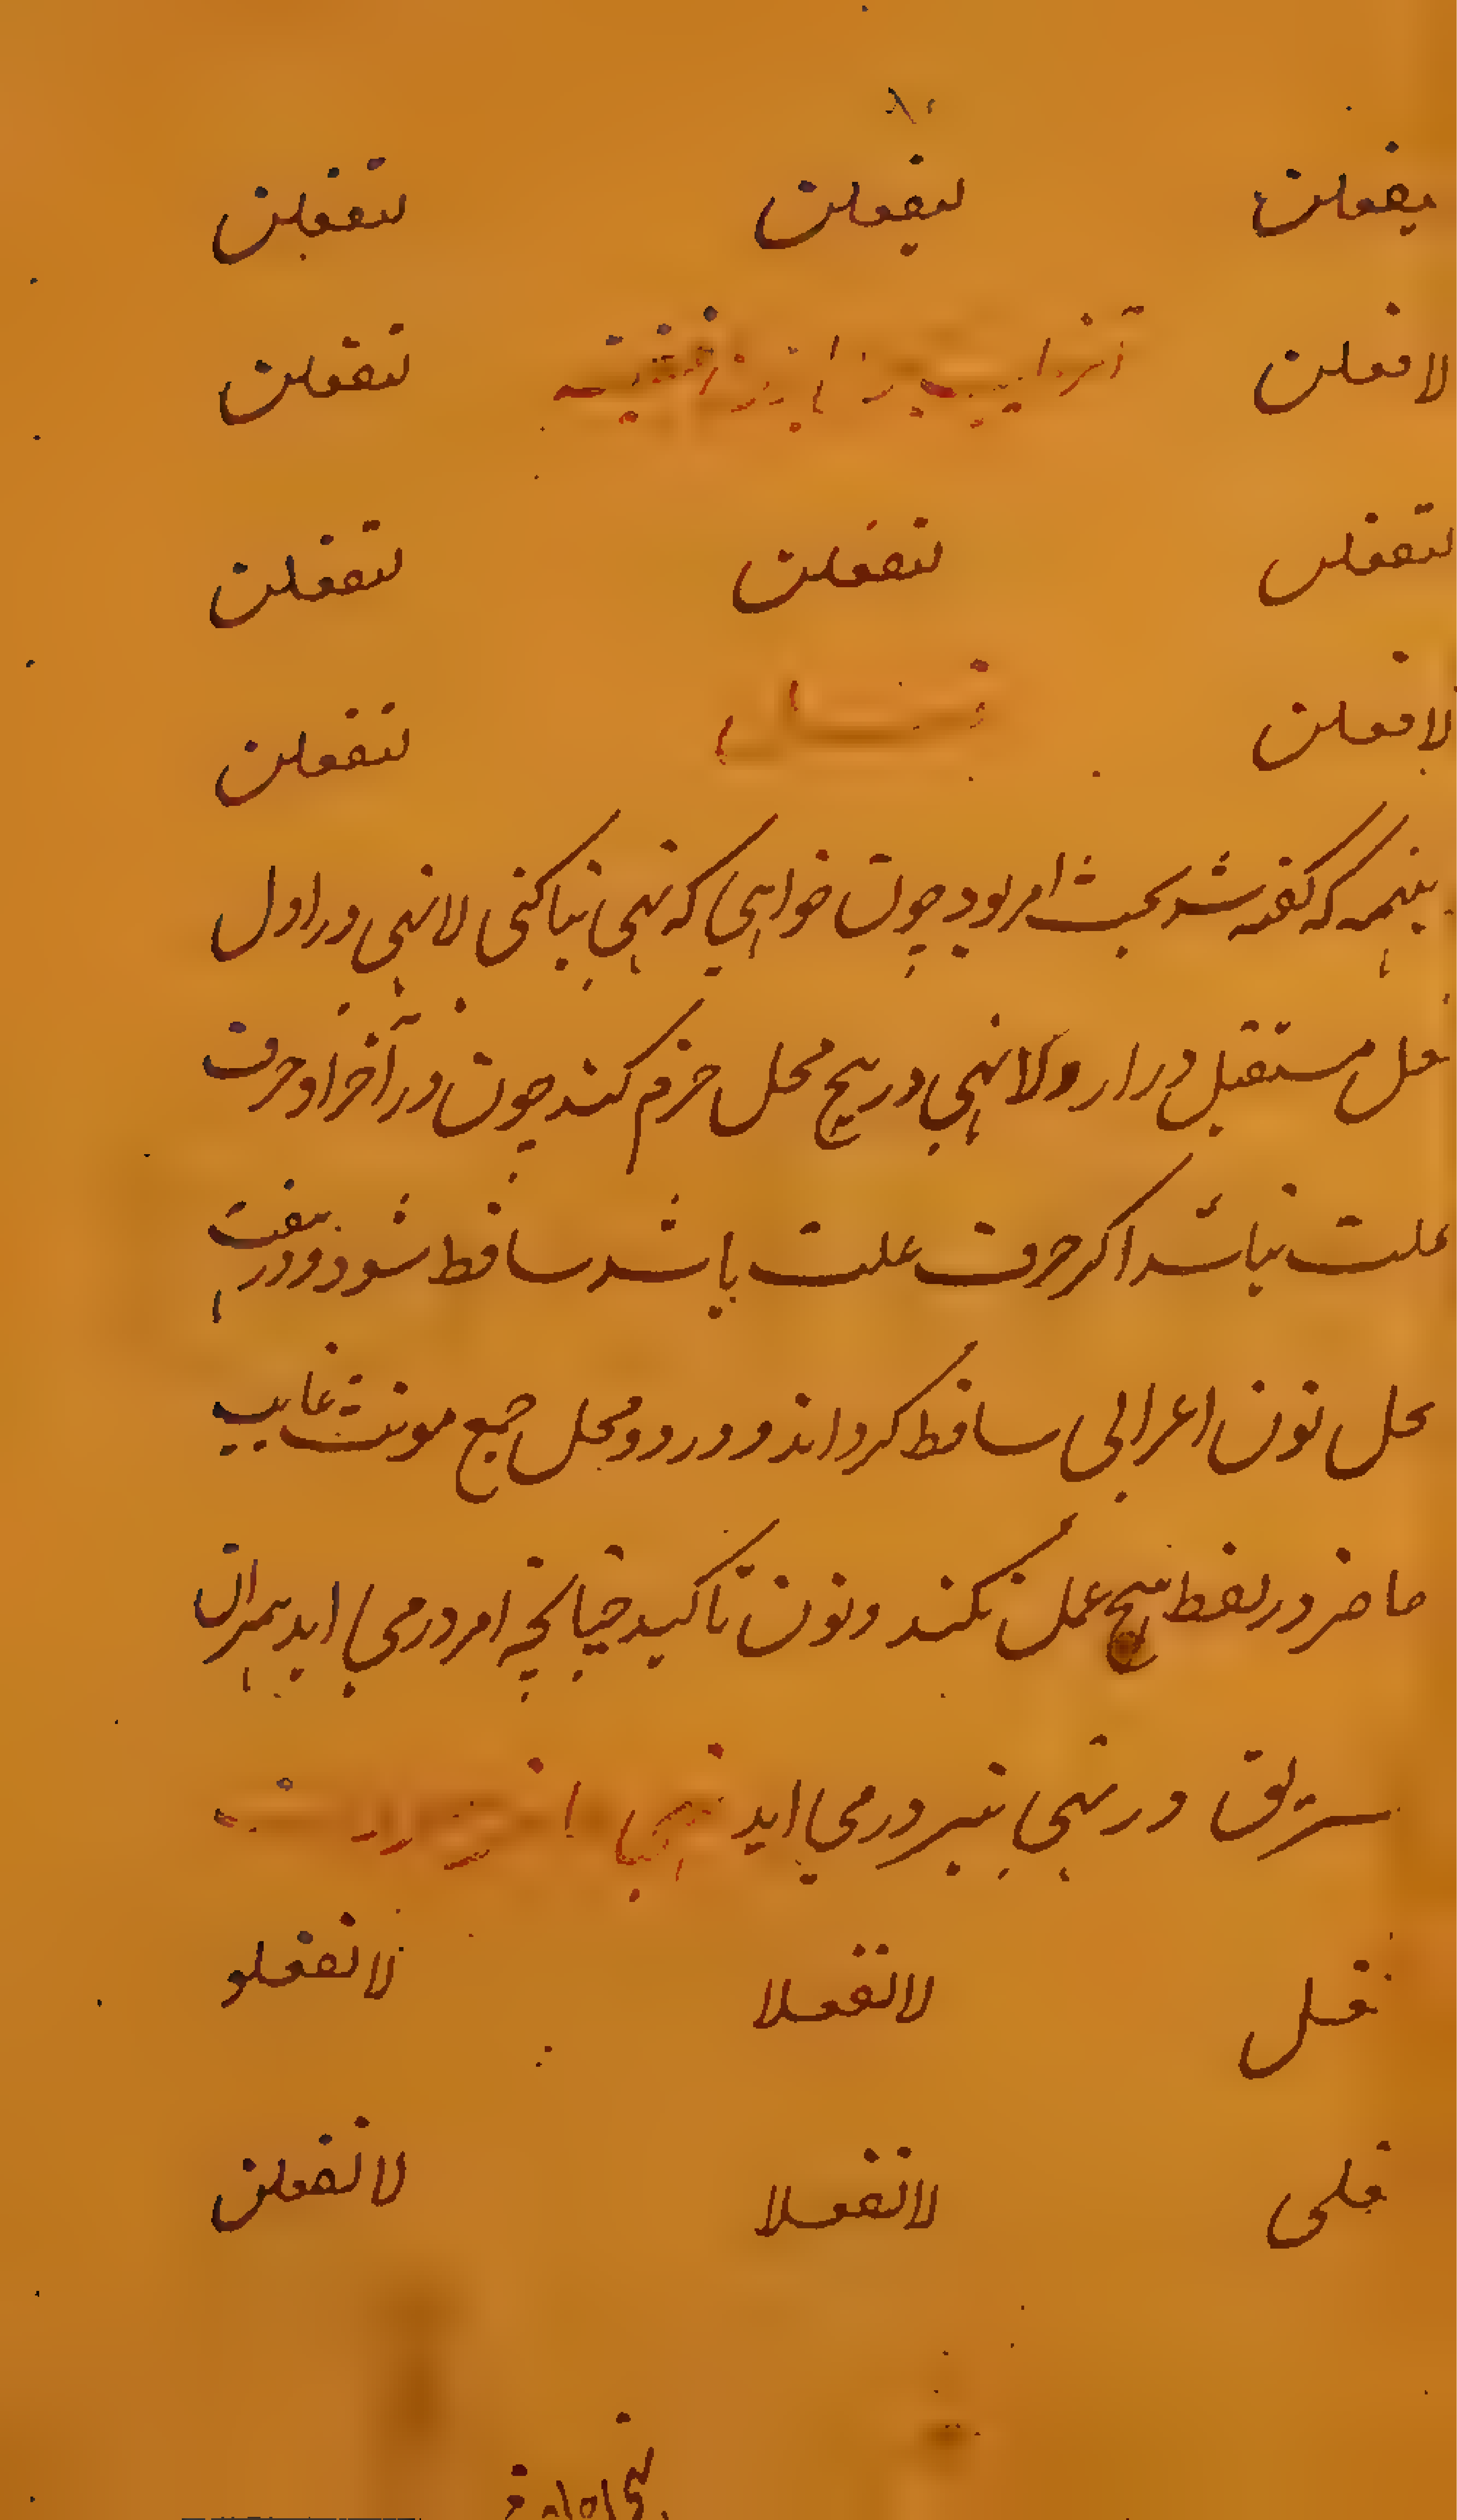 یفعلن لیفعلن لتفعلن
لافعلن لتفعلن
لتفعلن لتفعلن لتفعلن
لافعلن لتفعلن
اینهمه که گفته شد بحث امر بود چون خواهی که نهی بنا کنی لا نهی در اول
فعل مستقبل در ار و لا نهی در پنج محل جزم کند چون در آخر او حرف
علت نباشد اگر حرف علت باشد ساقط شود و در هفت
محل نون اعرابی ساقط کرداند و در دو محل جمع مونث غایب
حاضر در لفظ هیچ عمل نکند و نون تاکید چنانچه امر در می اید بهمان
طریق در نهی نیز در می اید
تفعل لا تفعلا لا تفعلو
تفعلی لا تفعلا لا تفعلن